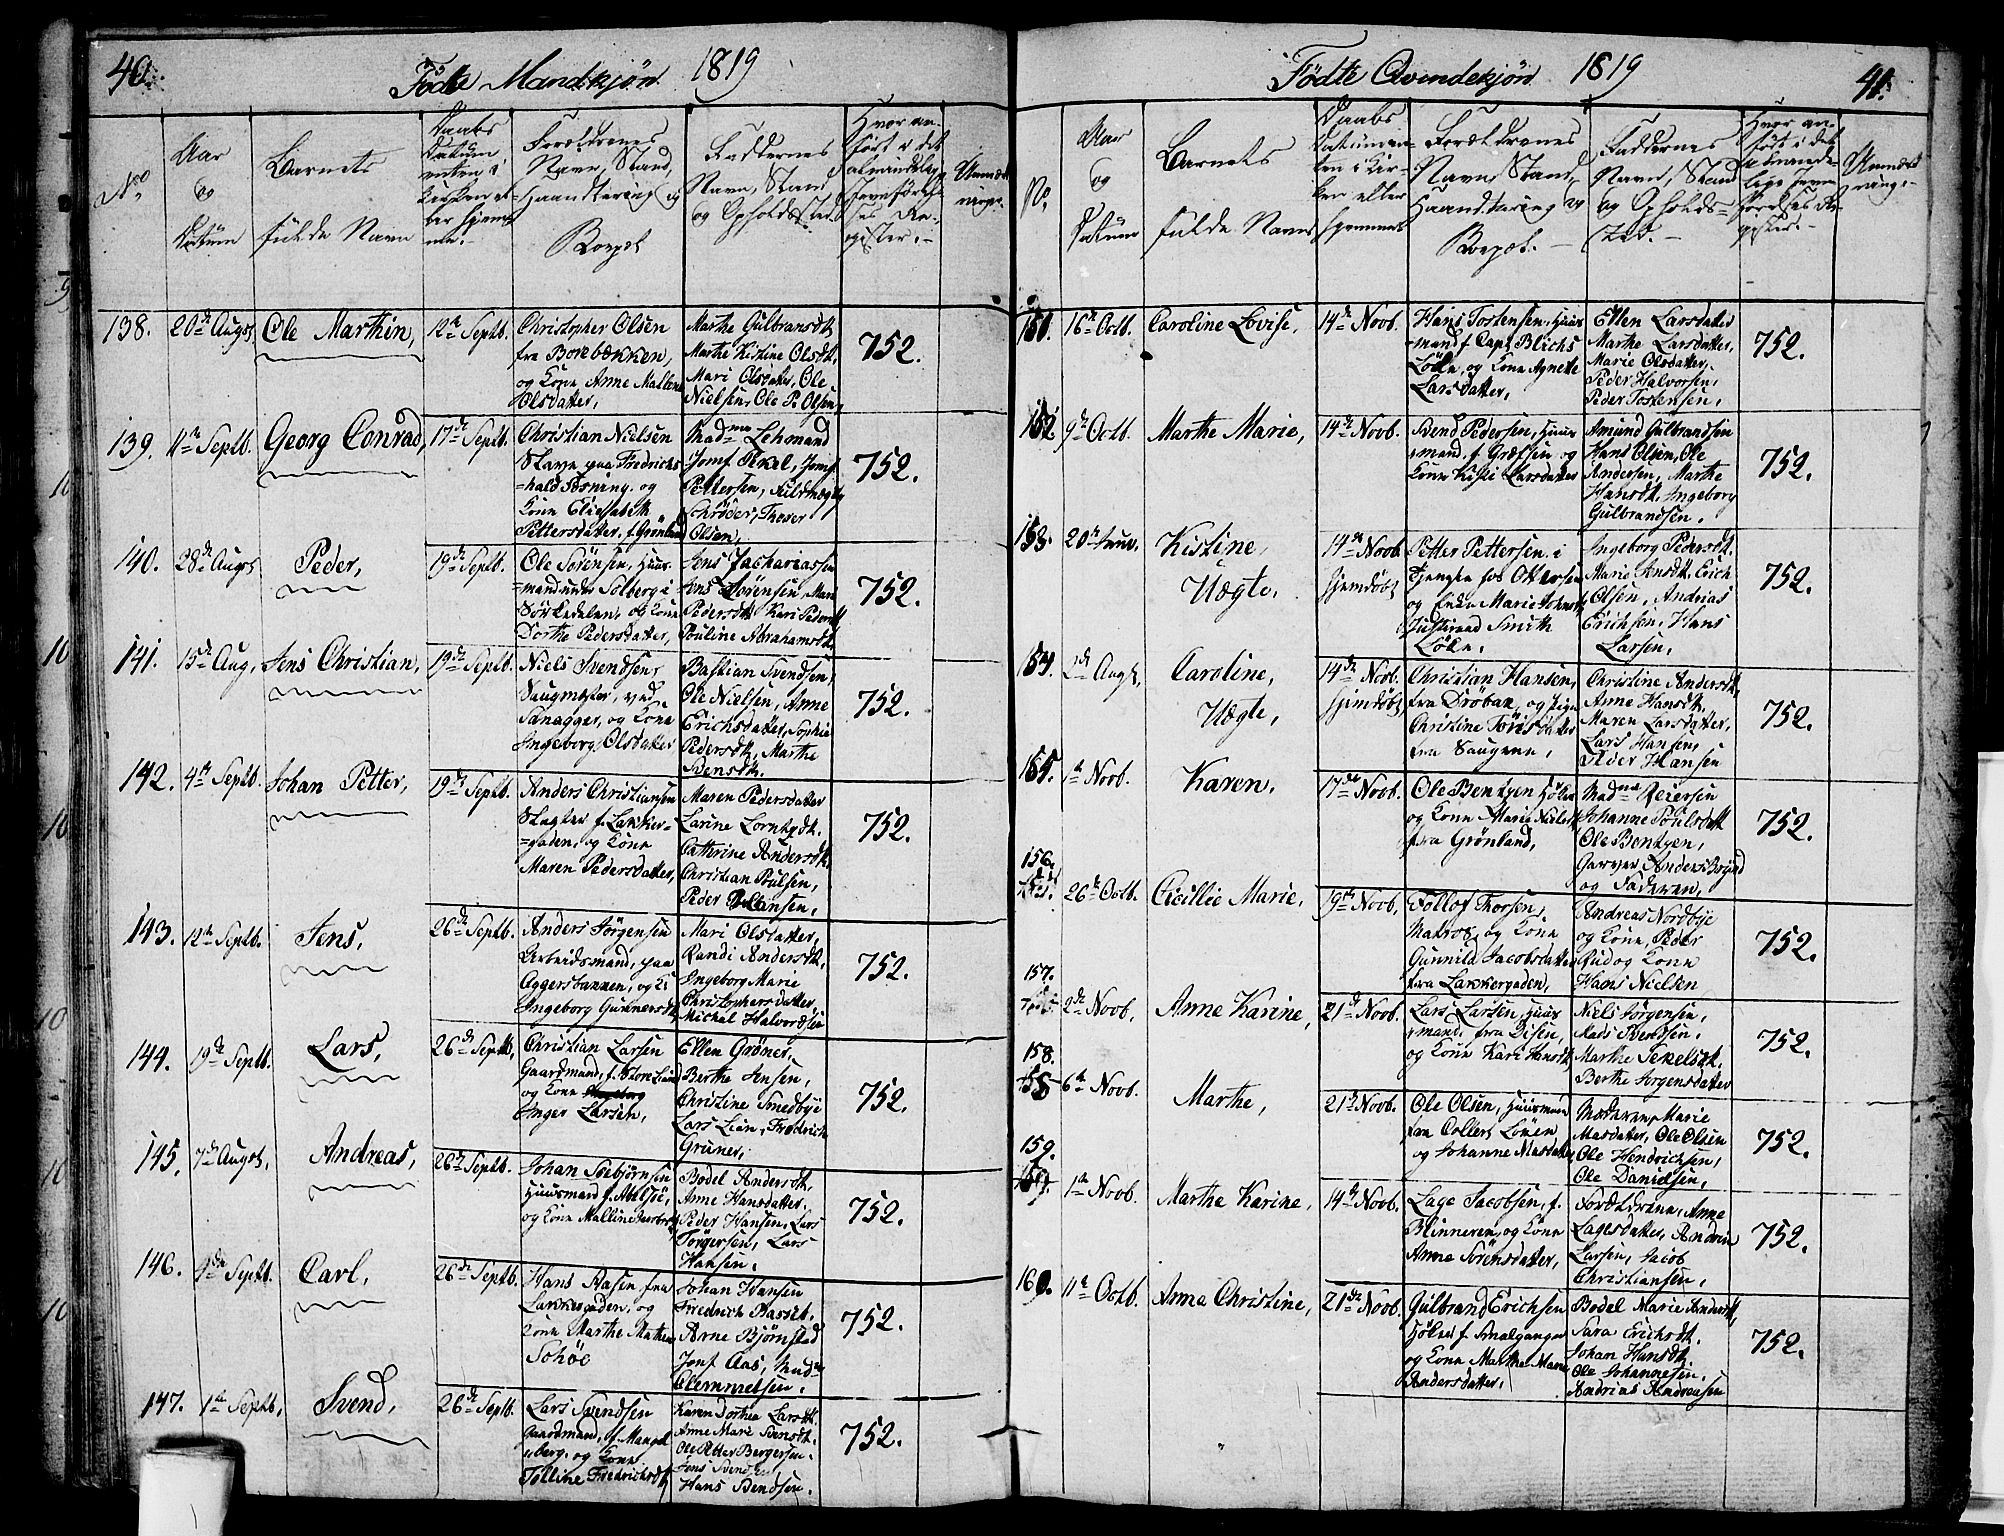 40.
Födte Mandkjön 1819
No
Aar
og
Datum
Barnets
fulde Navn
Daabs
Datum
Forældrenes
Navn, Stand,
Haandtering og
Boepæl
Faddernes
Navn, Stand
og Opholdsted
Hvor an-
fört i det
almindelige
138.
20de Augst
Ole Marthin,
12te Septb.
Christopher Olsen
fra Borebækken,
og Kone Anne Mallene
Olsdatter,
Marthe Gulbransdt.
Marthe Kistine Olsdt.
Mari Olsdatter, Ole
Nielsen, Ole P. Olsen,
752.
139.
11te Septb.
Georg Conrad,
17de Septb.
Christian Nielsen
Slave paa Fredrichs
=hald Fæsning, og
Kone Elisabeth
Pettersdatter, f. Grönland
Madme Lehmand
Jomf Pekel, Jomf
Pettersen, Fuldmægtig
Schröder, Theder
Olsen,
752.
140.
28de Augst
Peder,
19de Septb.
Ole Sörensen, Huus
=mand under Solberg i
Sörkedalen, og Kone
Dorthe Pedersdatter,
Jens Zachariassen
Jens Sörensen, Mari
Pedersdt. Kari Pedersdt
Pouline Abrahamsdt.
752.
141.
15de Aug,
Jens Christian,
19de Septb.
Niels Svendsen,
Saugmæster, ved
Sanagger, og Kone
Ingeborg Olsdatter
Bastian Svendsen,
Ole Nielsen, Anne
Erichsdatter, Sophie
Pedersdt, Marthe
Svensdt.
752.
142.
4de Septb.
Johan Petter,
19de Septb.
Anders Christiansen
Slagter f. Lakker-
=gaden, og Kone
Maren Pedersdatter,
Maren Pedersdatter
Larine Lorntzdt.
Cathrine Andersdt.
Christian Poulsen,
Peder Hansen,
752.
143.
12te Septb.
Jens,
26de Septb.
Anders Jörgensen
Arbeidsmand, paa
Aggersbanken, og K:
Ingeborg Gunnersdt.
Mari Olsdatter,
Randi Andersdt,
Ingeborg Marie
Christophersdatter,
Michel Halvordsen
752.
144.
19de Septb.
Lars,
26de Septb,
Christian Larsen
Gaardmand, f. Store Lien
og Kone
Inger Larsen,
Ellen Gröner,
Berthe Jensen,
Christine Smedbye
Lars Lien, Fredrich
Gruner,
752.
145.
7de Augst,
Andreas,
26de Septb.
Johan Seebjörnsen
Huusmand f. Abelsöe,
og Kone Malline Jacobsdt.
Bodel Andersdt,
Anne Hansdatter,
Peder Hansen, Lars
Torgersen, Lars
Hansen,
752.
146.
9de Septb.
Carl,
26de Septb.
Hans Aasen fra
Lakkegaden, og
Kone Marthe Mathea
Schöe
Johan Hansen
Fredrich Hassel.
Arne Bjørnstad
Jomf Aas, Mad
Clemmetsen,
752.
147.
1te Septb,
Svend,
26de Septb.
Lars Svendsen
Gaardmand, f. Mangel
=berg, og Kone
Tolline Fredrichsdt.
Karen Dorthea Larsdt.
Anne Mari Svensdt.
Ole Petter Bergersen,
Jens Svendsen
Hans Bendsen.
752.
41.
Födte Qvindekjön 1819
No.
Aar
og
Datum
Barnets
fulde Navn
Daabs
Datum
Forældrenes
Navn, Stand,
Haandtering og
Boepæl. -
Faddernes
Navn, Stand
og Opholds=
sted. -
Hvor an-
fört i det
151.
16te Octb.
Caroline Lovise,
14de Novb.
Hans Tostensen, Huus
=mand f. Capt Blichs
Löke, og Kone Agnete
Larsdatter,
Ellen Larsdatter
Marthe Larsdatter,
Marie Olsdatter,
Peder Halvorsen,
Peder Tostensen,
752.
152.
9de Octb.
Marthe Marie,
14de Novb.
Svend Pedersen, Huus
=mand f. Græfsen og
Kone Kisti Larsdatter
Amund Gulbrandsen
Hans Olsen, Ole
Andersen, Marthe
Hansdt. Ingeborg
Gulbrandsen.
752.
153.
Kistine,
Uægte,
14de Novb.
Hjemdöbt
Petter Pettersen i
Tjeneste hos Ottersen
og Enke Marie
Smith
Löke,
Ingeborg Pedersdt.
Marie Jensdt. Erich
Olsen, Andrias
Erichsen, Hans
Larsen,
752.
154.
Augst,
Caroline,
Uægte,
14de Novb.
Hjemdöbt
Christian Hansen,
fra Dröbak, og Pige
Christine Törisdatter
fra Saugene,
Christine Andersdt,
Anne Hansdt,
Maren Larsdatter,
Lars Hansen,
Peder Hansen
752.
155.
1te Novb.
Karen,
17de Novb.
Ole Bentzen Höker
og Kone Marie Nielsdt.
fra Grönland,
Madme Feiersen
Johanne Poulsdt
Ole Bentzen,
Garver Anders Brynd
og Faderen,
752.
156.
26de Octb.
Cicillie Marie,
19de Novb,
Tollof Thorsen,
Matros, og Kone
Gunnild Jacobsdatter
fra Lakkergaden,
Andreas Nordbye
og Kone, Peder
Rud og Kone
Hans Nielsen
752.
157.
2de Novb.
Anne Karine,
21de Novb.
Lars Larsen, Huus
=mand, fra Disen,
og Kone Kari Hansdt,
Niels Jörgensen,
Mads Svendsen,
Marthe Tekelsdt.
Berthe Jörgensdatter
752.
158.
6te Novb.
Marthe,
21de Novb.
Ole Olsen, Huusmand
fra Collert Löken
og Johanne Masdatter,
Moderen, Marie
Masdatter, Ole Olsen
Ole Hendrichsen,
Ole Danielsen,
752.
159.
1te Novb.
Marthe Karine,
14de Novb.
Lage Jacobsen, f.
Blinneren, og Kone
Anne Sörensdatter,
Forældrene, Anne
Lagesdatter, Andrea
Larsen, Jacob
Christiansen,
752.
160.
11te Octb.
Anne Christine,
21de Novb.
Gulbrand Erichsen
Höker f. Smalgangen
og Kone Marthe Marie
Andersdatter,
Bodel Marie Andersdt,
Sara Erichsdt.
Johan Hansdt.
Ole Johannesen,
Andrias Andreasen
752.